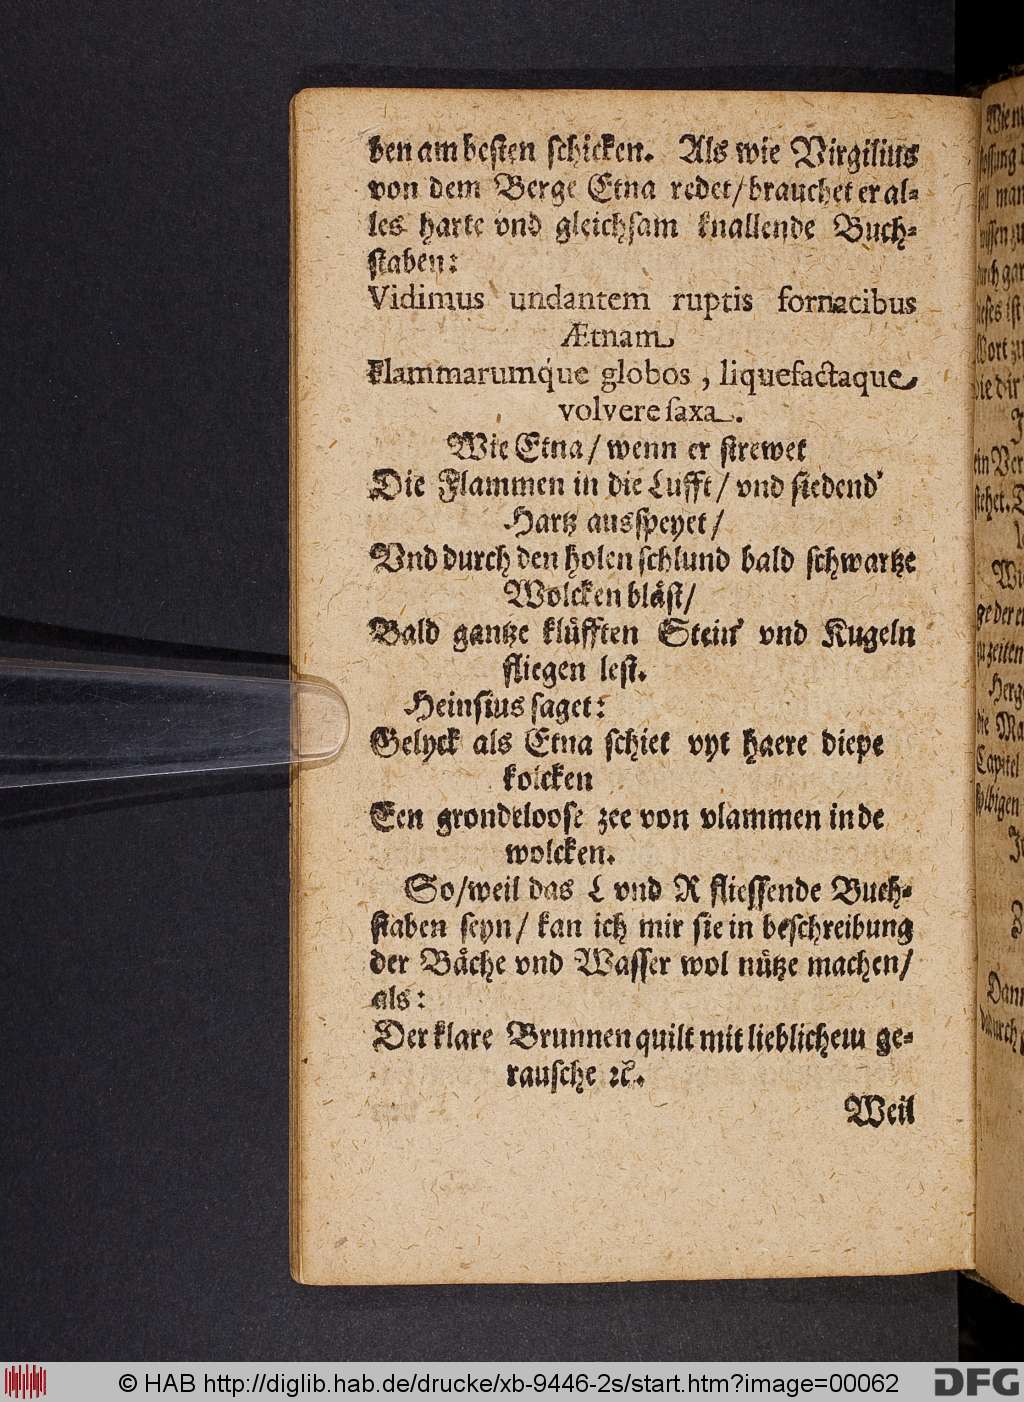 ben am besten schicken. Als wie Virgilius
von dem Berge Etna redet/ brauchet er al-
les harte vnd gleichsam knallende Buch-
staben:
Vidimus undantem ruptis fornacibus
Ætnam
Flammarumq́ue globos, liquefactaque
volvere saxa.
Wie Etna/ wenn er strewet
Die Flammen in die Lufft/ vnd siedend'
Hartz ausspeyet/
Vnd durch den holen schlund bald schwartze
Wolcken bläst/
Bald gantze klüfften Stein' vnd Kugeln
fliegen lest.
Heinsius saget:
Gelyck als Etna schiet vyt haere diepe
kolcken
Een grondeloose zee von vlammen in de
wolcken.
So/ weil das L vnd R fliessende Buch-
staben seyn/ kan ich mir sie in beschreibung
der Bäche vnd Wasser wol nütze machen/
als:
Der klare Brunnen quilt mit lieblichem ge-
rausche ꝛc.
Weil
© HAB http://diglib.hab.de/drucke/xb-9446-2s/start.htm?image=00062
DFG